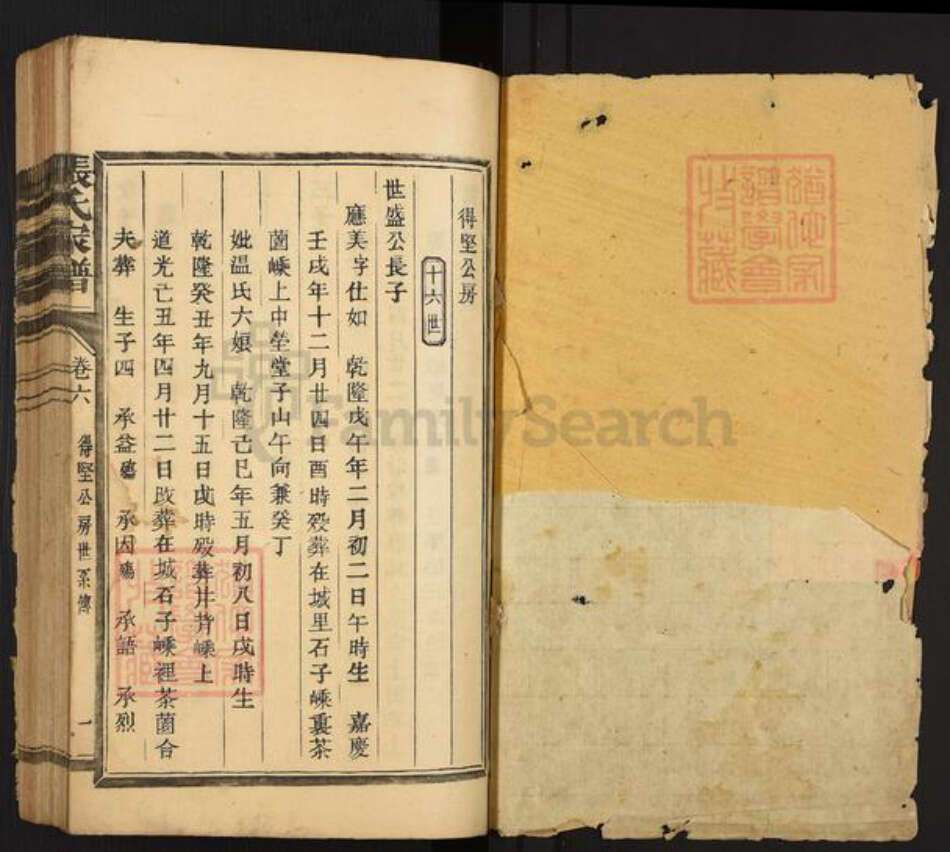 得堅公房
十六世
世盛公長子
應美字仕如 乾隆戊午年二月初二日午時生 嘉慶
壬戌年十二月廿四日酉時歿葬在城里石子嵊裏茶
菌嵊上中塋堂子山午向兼癸丁
妣溫氏六娘 乾隆己巳年五月初八日戌時生
乾隆癸丑年九月十五日戌時歿葬井背嵊上
道光己丑年四月廿二日改葬在城石子嵊裡茶菌合
夫葬 生子四 承益 承因 承語 承烈
張氏家譜
卷六
得堅公房世系傳
一
FamilySearch